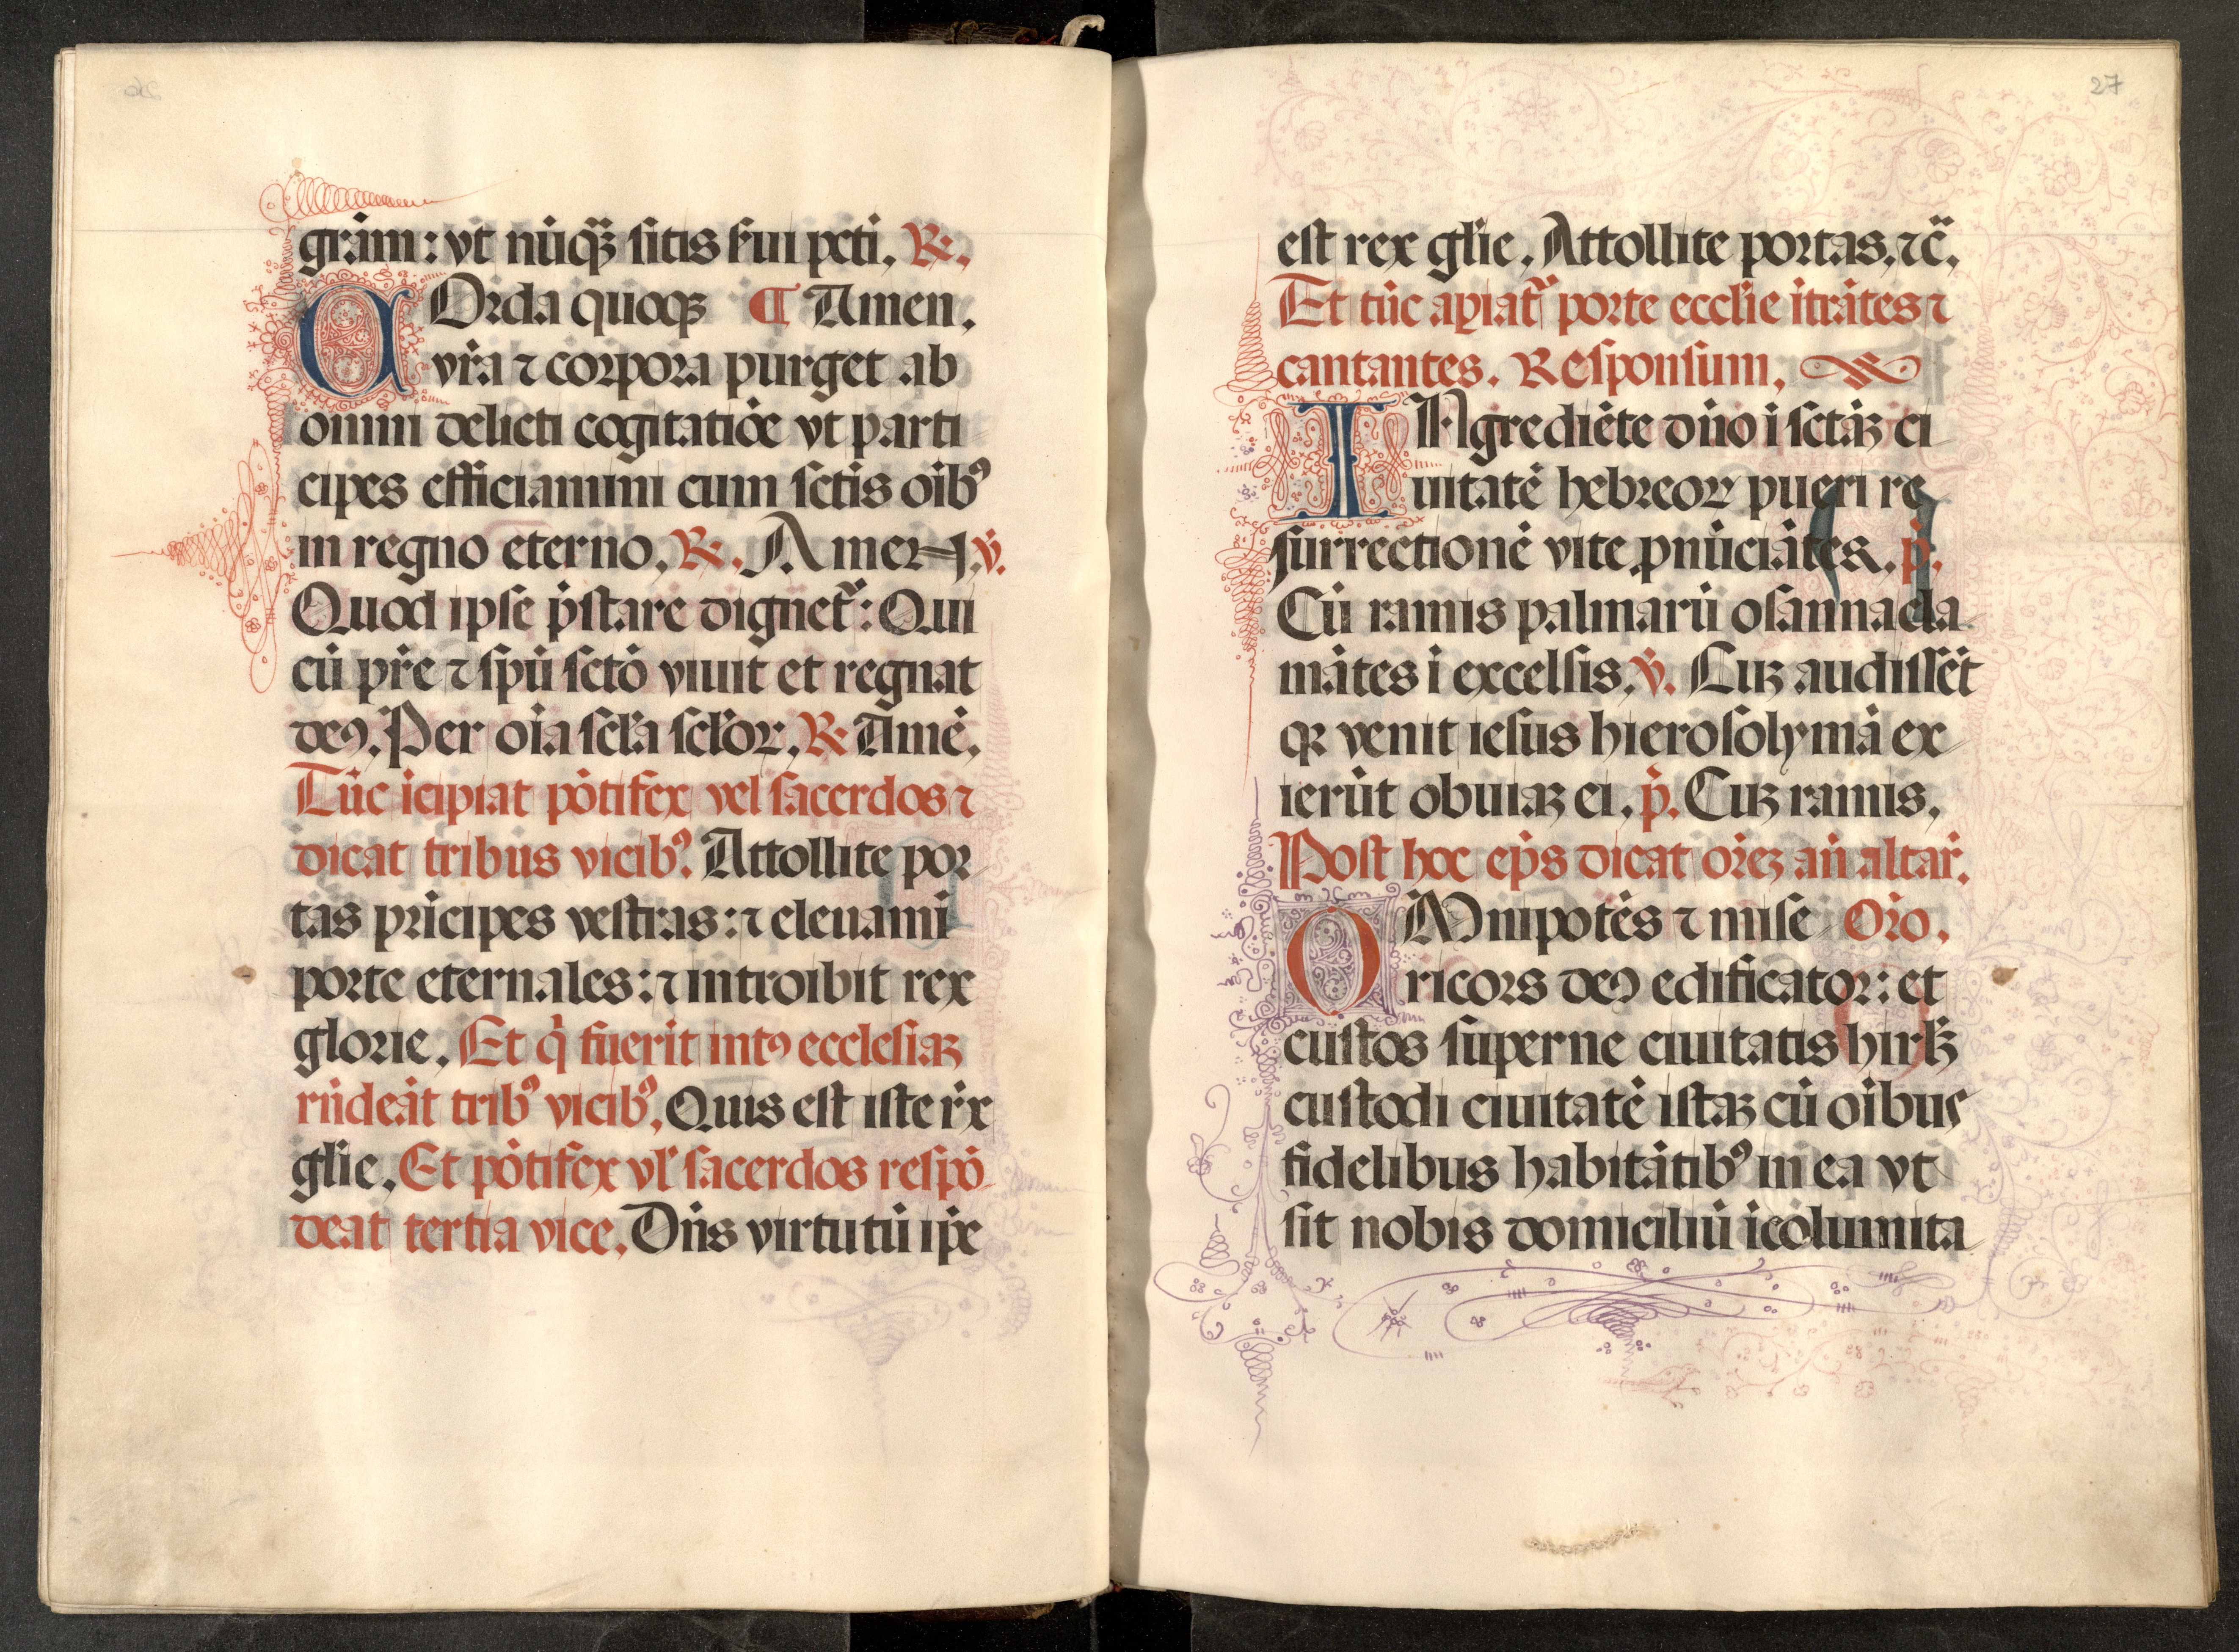 grãm: vt nũq̃ʒ sitis sʼui pcti. ℟.
COrda quoqʒ ¶ Amen.
vr̃a ⁊ corpora purget ab
omni delicti cogitatiõe vt parti
cipes efficiamini cum sctis oĩbꝰ
in regno eterno. ℟. Amen. ℣.
Quod ipse p̃stare dignet᷑: Qui
cũ pr̃e ⁊ spũ sctõ viuit et regnat
deꝰ. Per oĩa scľa scľoꝝ. ℟ Amẽ.
Tũc ĩcipiat põtifex vel sacerdos ⁊
dicat tribus vicibꝰ. Attollite por
tas prĩcipes vestras: ⁊ eleuamĩ
porte eternales: ⁊ introibit rex
glorie. Et q̇ fuerit intꝰ ecclesiaʒ
rñdeãt tribꝰ vicibꝰ. Quis est iste r̃x
glĩe. Et põtifex vľ sacerdos respõ
deat tertia vice. Dñs virtutũ ip̃e
27
est rex glĩe. Attollite portas. ⁊c̃.
Et tũc apiat᷑ porte ecclĩe ĩtrãtes ⁊
cantantes. Responsum.
INgrediẽte dño ĩ sctãʒ ci
uitatẽ hebreoꝝ pueri re
surrectionẽ vite ꝓnũciãtes. p̃.
Cũ ramis palmarũ osanna cla
mãtes ĩ excelsis. ℣. Cuʒ audissẽt
qꝛ venit iesus hierosolymã ex
ierũt obuiaʒ ei. p̃. Cuʒ ramis.
Post hoc ep̃s dicat orẽʒ añ altar̃.
OMnipotẽs ⁊ mise Or̃o.
ricors deꝰ edificator: et
custos superne ciuitatis hirľʒ
custodi ciuitatẽ istaʒ cũ oĩbus
fidelibus habitãtibꝰ in ea vt
sit nobis domiciliũ ĩcolumita